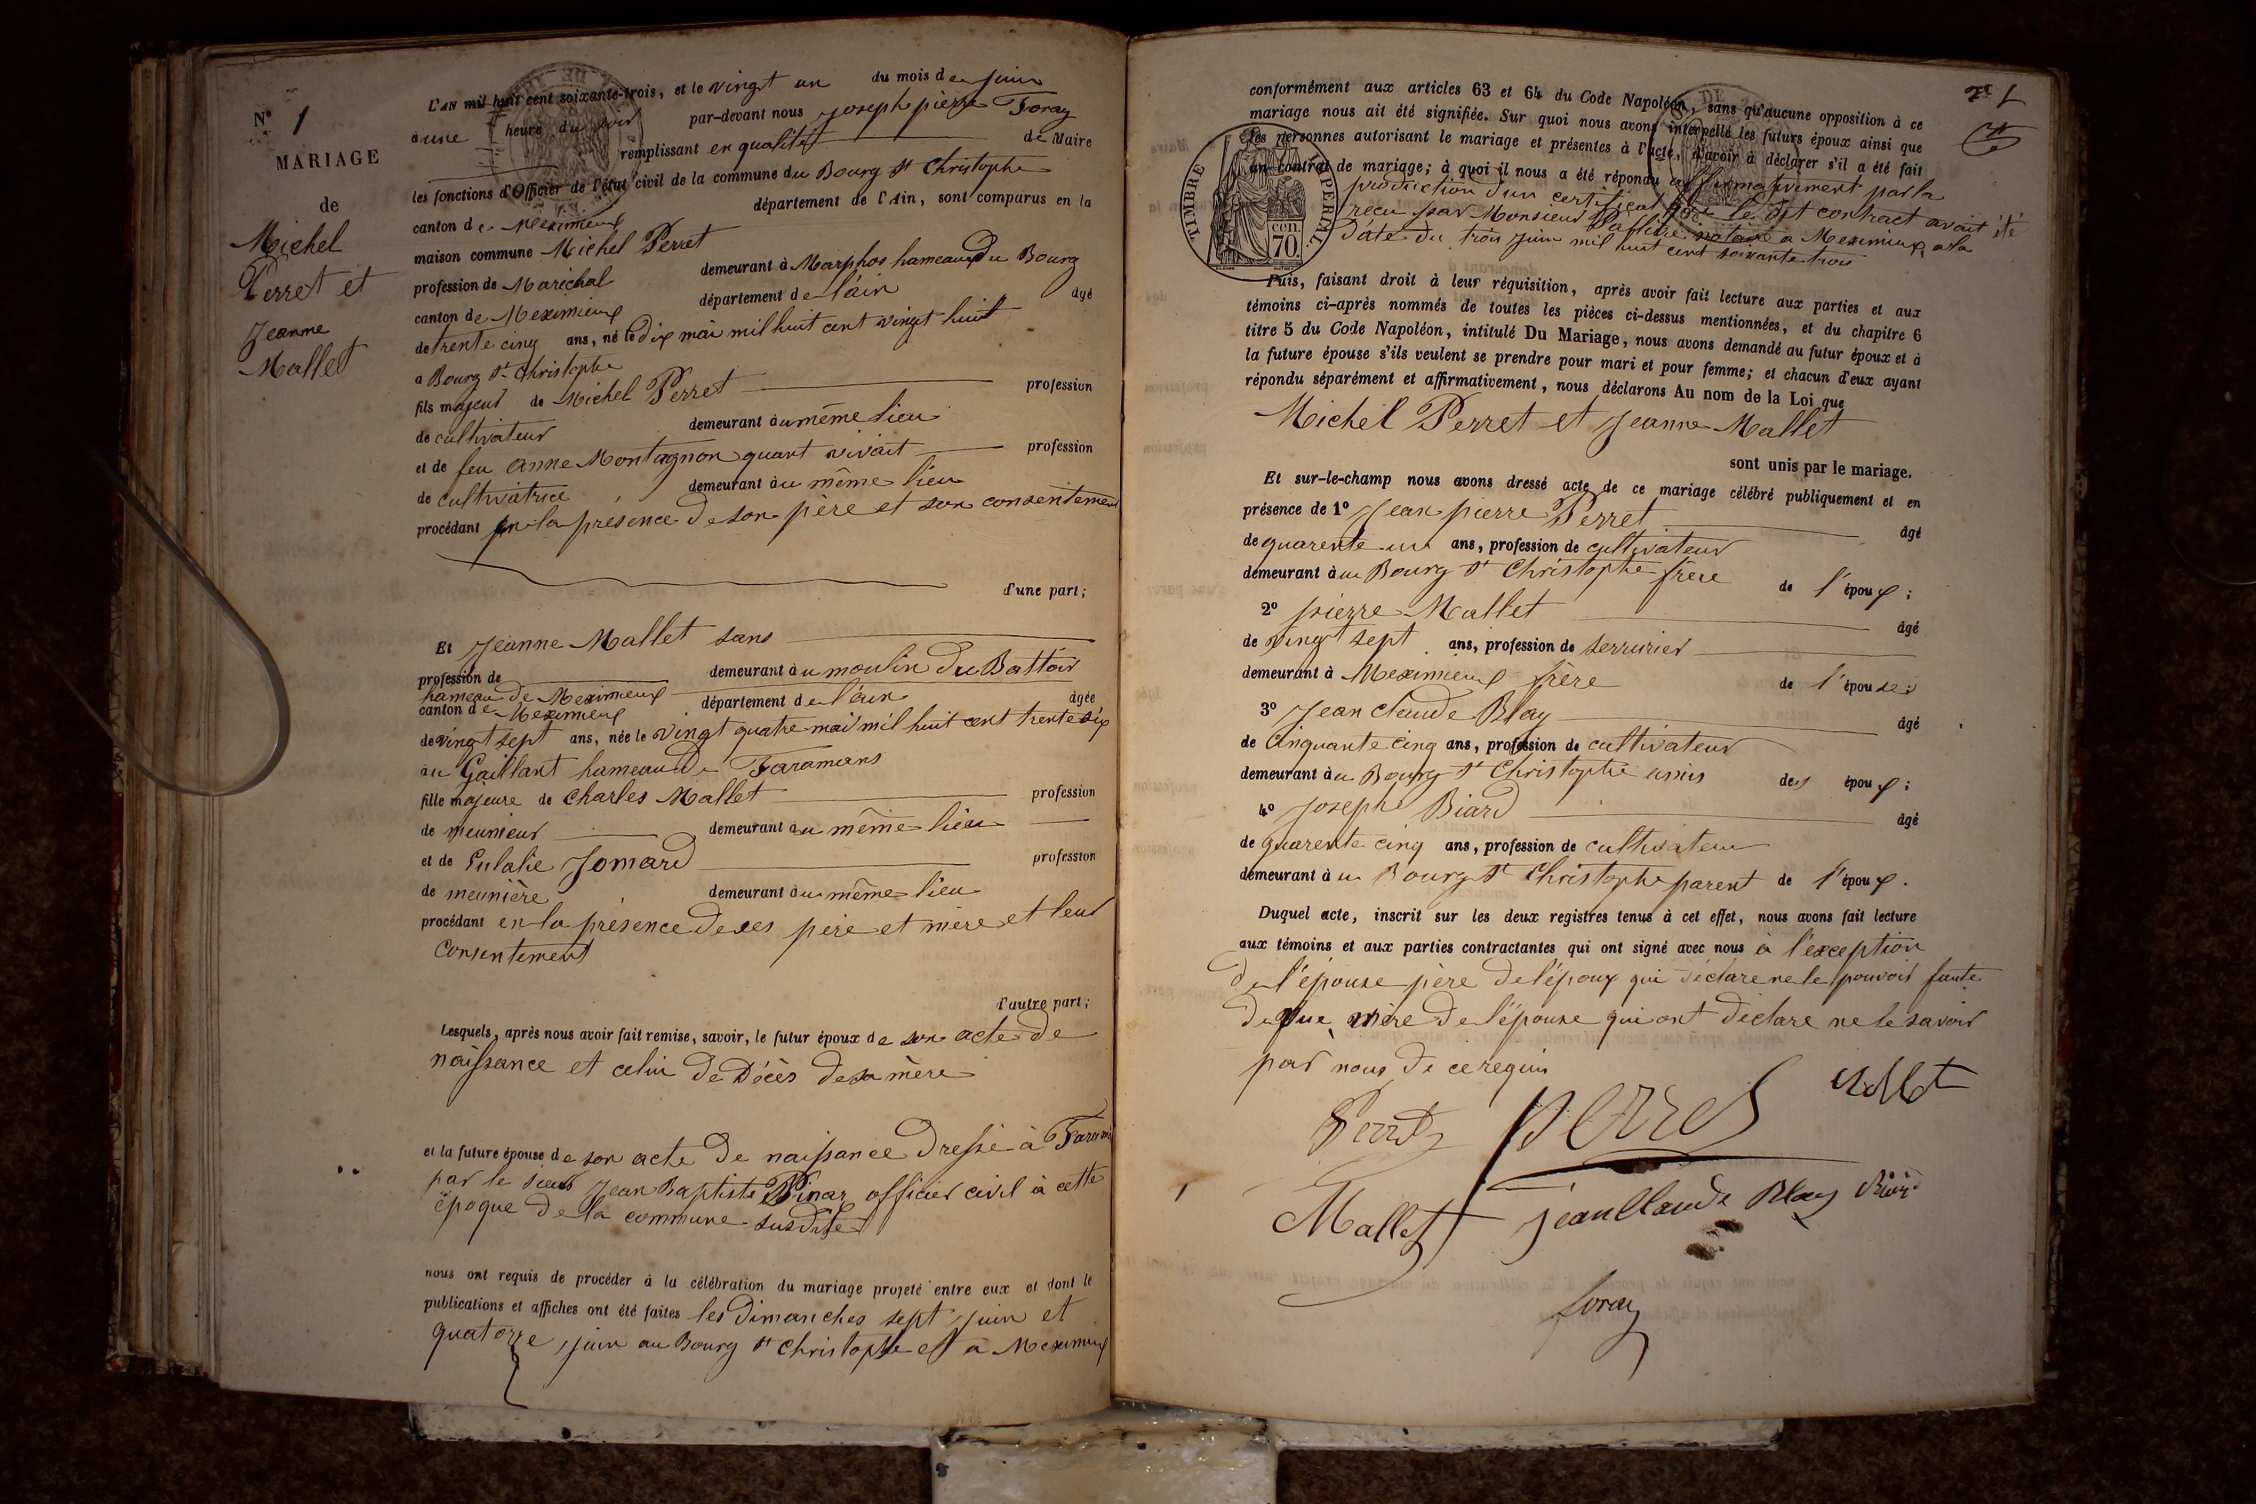 N° 1
MARIAGE
de
Michel
Perret et
Jeanne
Mallet
L'AN mil huit cent soixante-trois, et le vingt un du mois de juin
à une heure du soir par-devant nous joseph pierre Foray
remplissant en qualité de Maire
les fonctions d'Officier de l'état civil de la commune du Bourg St Christophe
canton de Meximieux département de l'Ain, sont comparus en la
maison commune Michel Perret
profession de Maréchal demeurant à Marphos hameau du Bourg
canton de Meximieux département de l'ain âgé
de trente cinq ans, né le dix mai mil huit cent vingt huit
a Bourg St Christophe
fils majeur de Michel Perret profession
de cultivateur demeurant au même lieu
et de feu anne Montagnon quant vivait profession
de cultivatrice demeurant au même lieu
procédant en la présence de son père et son consentement
d'une part;
Et Jeanne Mallet sans
profession de demeurant au moulin du Battoir
hameau de Meximieux
canton de Meximieux département de l'ain âgée
de vingt sept ans, née le vingt quatre mai mil huit cent trente six
au Gaillant hameau de Faramans
fille majeure de Charles Mallet profession
de meunier demeurant au même lieu
et de Eulalie Jomard profession
de meunière demeurant au même lieu
procédant en la présence de ses père et mère et leur
consentement
d'autre part;
Lesquels, après nous avoir fait remise, savoir, le futur époux de son acte de
naissance et celui de Décès de sa mère
et la future épouse de son acte de naissance dressé à
par le sieur Jean Baptiste officier civil à cette
époque de la commune susdite
nous ont requis de procéder à la célébration du mariage projeté entre eux et dont le
publications et affiches ont été faites les dimanches sept juin et
quatorze juin au Bourg St Christophe et a Meximieux
conformément aux articles 63 et 64 du Code Napoléon, sans qu'aucune opposition à ce
mariage nous ait été signifiée. Sur quoi nous avons interpellé les futurs époux ainsi que
les personnes autorisant le mariage et présentes à l'acte, d'avoir à déclarer s'il a été fait
un contrat de mariage; à quoi il nous a été répondu affirmativement par la
production d'un certificat que le dit contract avait été
recu par Monsieur notaire a Meximieux a la
date du trois juin mil huit cent soixante trois
TIMBRE IMPERIAL
cen.
70.
Puis, faisant droit à leur réquisition, après avoir fait lecture aux parties et aux
témoins ci-après nommés de toutes les pièces ci-dessus mentionnées, et du chapitre 6
titre 5 du Code Napoléon, intitulé Du Mariage, nous avons demandé au futur époux et à
la future épouse s'ils veulent se prendre pour mari et pour femme; et chacun d'eux ayant
répondu séparément et affirmativement, nous déclarons Au nom de la Loi que
Michel Perret et Jeanne Mallet
sont unis par le mariage.
Et sur-le-champ nous avons dressé acte de ce mariage célébré publiquement et en
présence de 1° Jean pierre Perret âgé
de quarente un ans, profession de cultivateur
demeurant au Bourg St Christophe frère de l'époux;
2° pierre Mallet âgé
de vingt sept ans, profession de serrurier
demeurant à Meximieux frère de l'épouse;
3° Jean claude Blay âgé
de cinquante cinq ans, profession de cultivateur
demeurant au Bourg St Christophe amis des époux;
4° Joseph Biard âgé
de quarente cinq ans, profession de cultivateur
demeurant au Bourg St Christophe parent de l'époux.
Duquel acte, inscrit sur les deux registres tenus à cet effet, nous avons fait lecture
aux témoins et aux parties contractantes qui ont signé avec nous à l'exception
de l'épouse père de l'époux qui déclare ne le pouvoir faute
de vue, mère de l'épouse qui ont déclare ne le savoir
par nous de ce requis
Mallet
Perret Perret
Mallet jean Claude Blay
foray